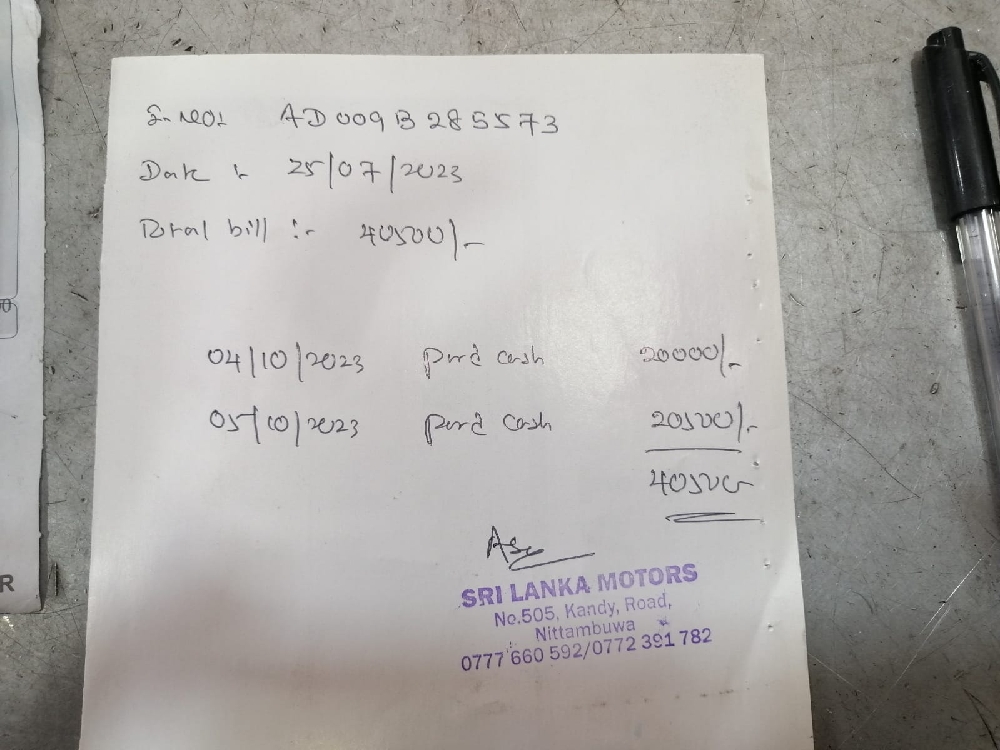 S. NO: AD009B285573
Date :- 25/07/2023
Total bill :- 40500/-
04/10/2023 paid cash 20000/-
05/10/2023 paid cash 20500/-
40500
SRI LANKA MOTORS
No.505, Kandy, Road,
Nittambuwa
0777 660 592/0772 391 782
R